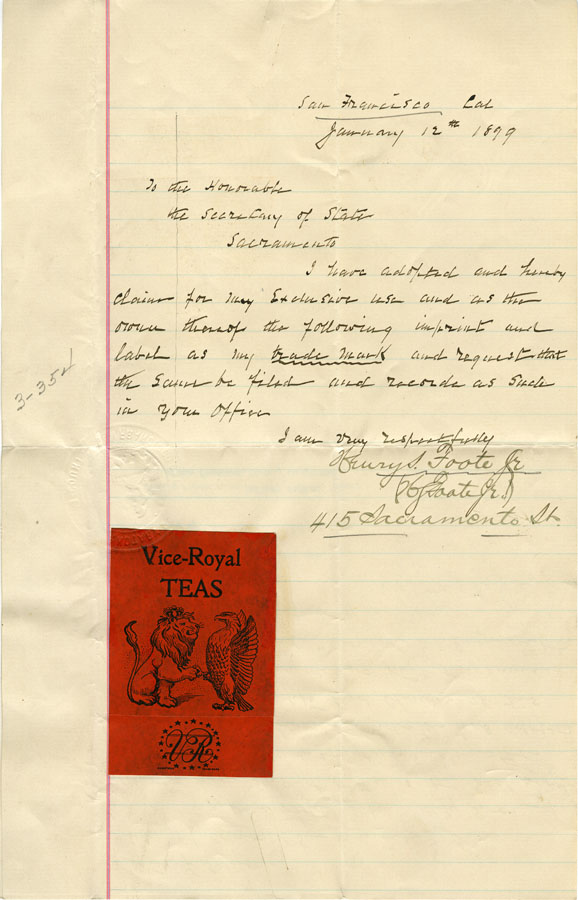 San Francisco Cal
January 12th 1899
To the Honorable
the Secretary of State
Sacramento
I have adopted and hereby
claim for my Exclusive use and as the
owner thereof the following imprint and
label as my trade mark and request that
the same be filed and records as such
in your office
I am very respectfully
Henry S. Foote Jr
(HSFoote Jr.)
415 Sacramento St.
3-354
Vice-Royal
TEAS
VR